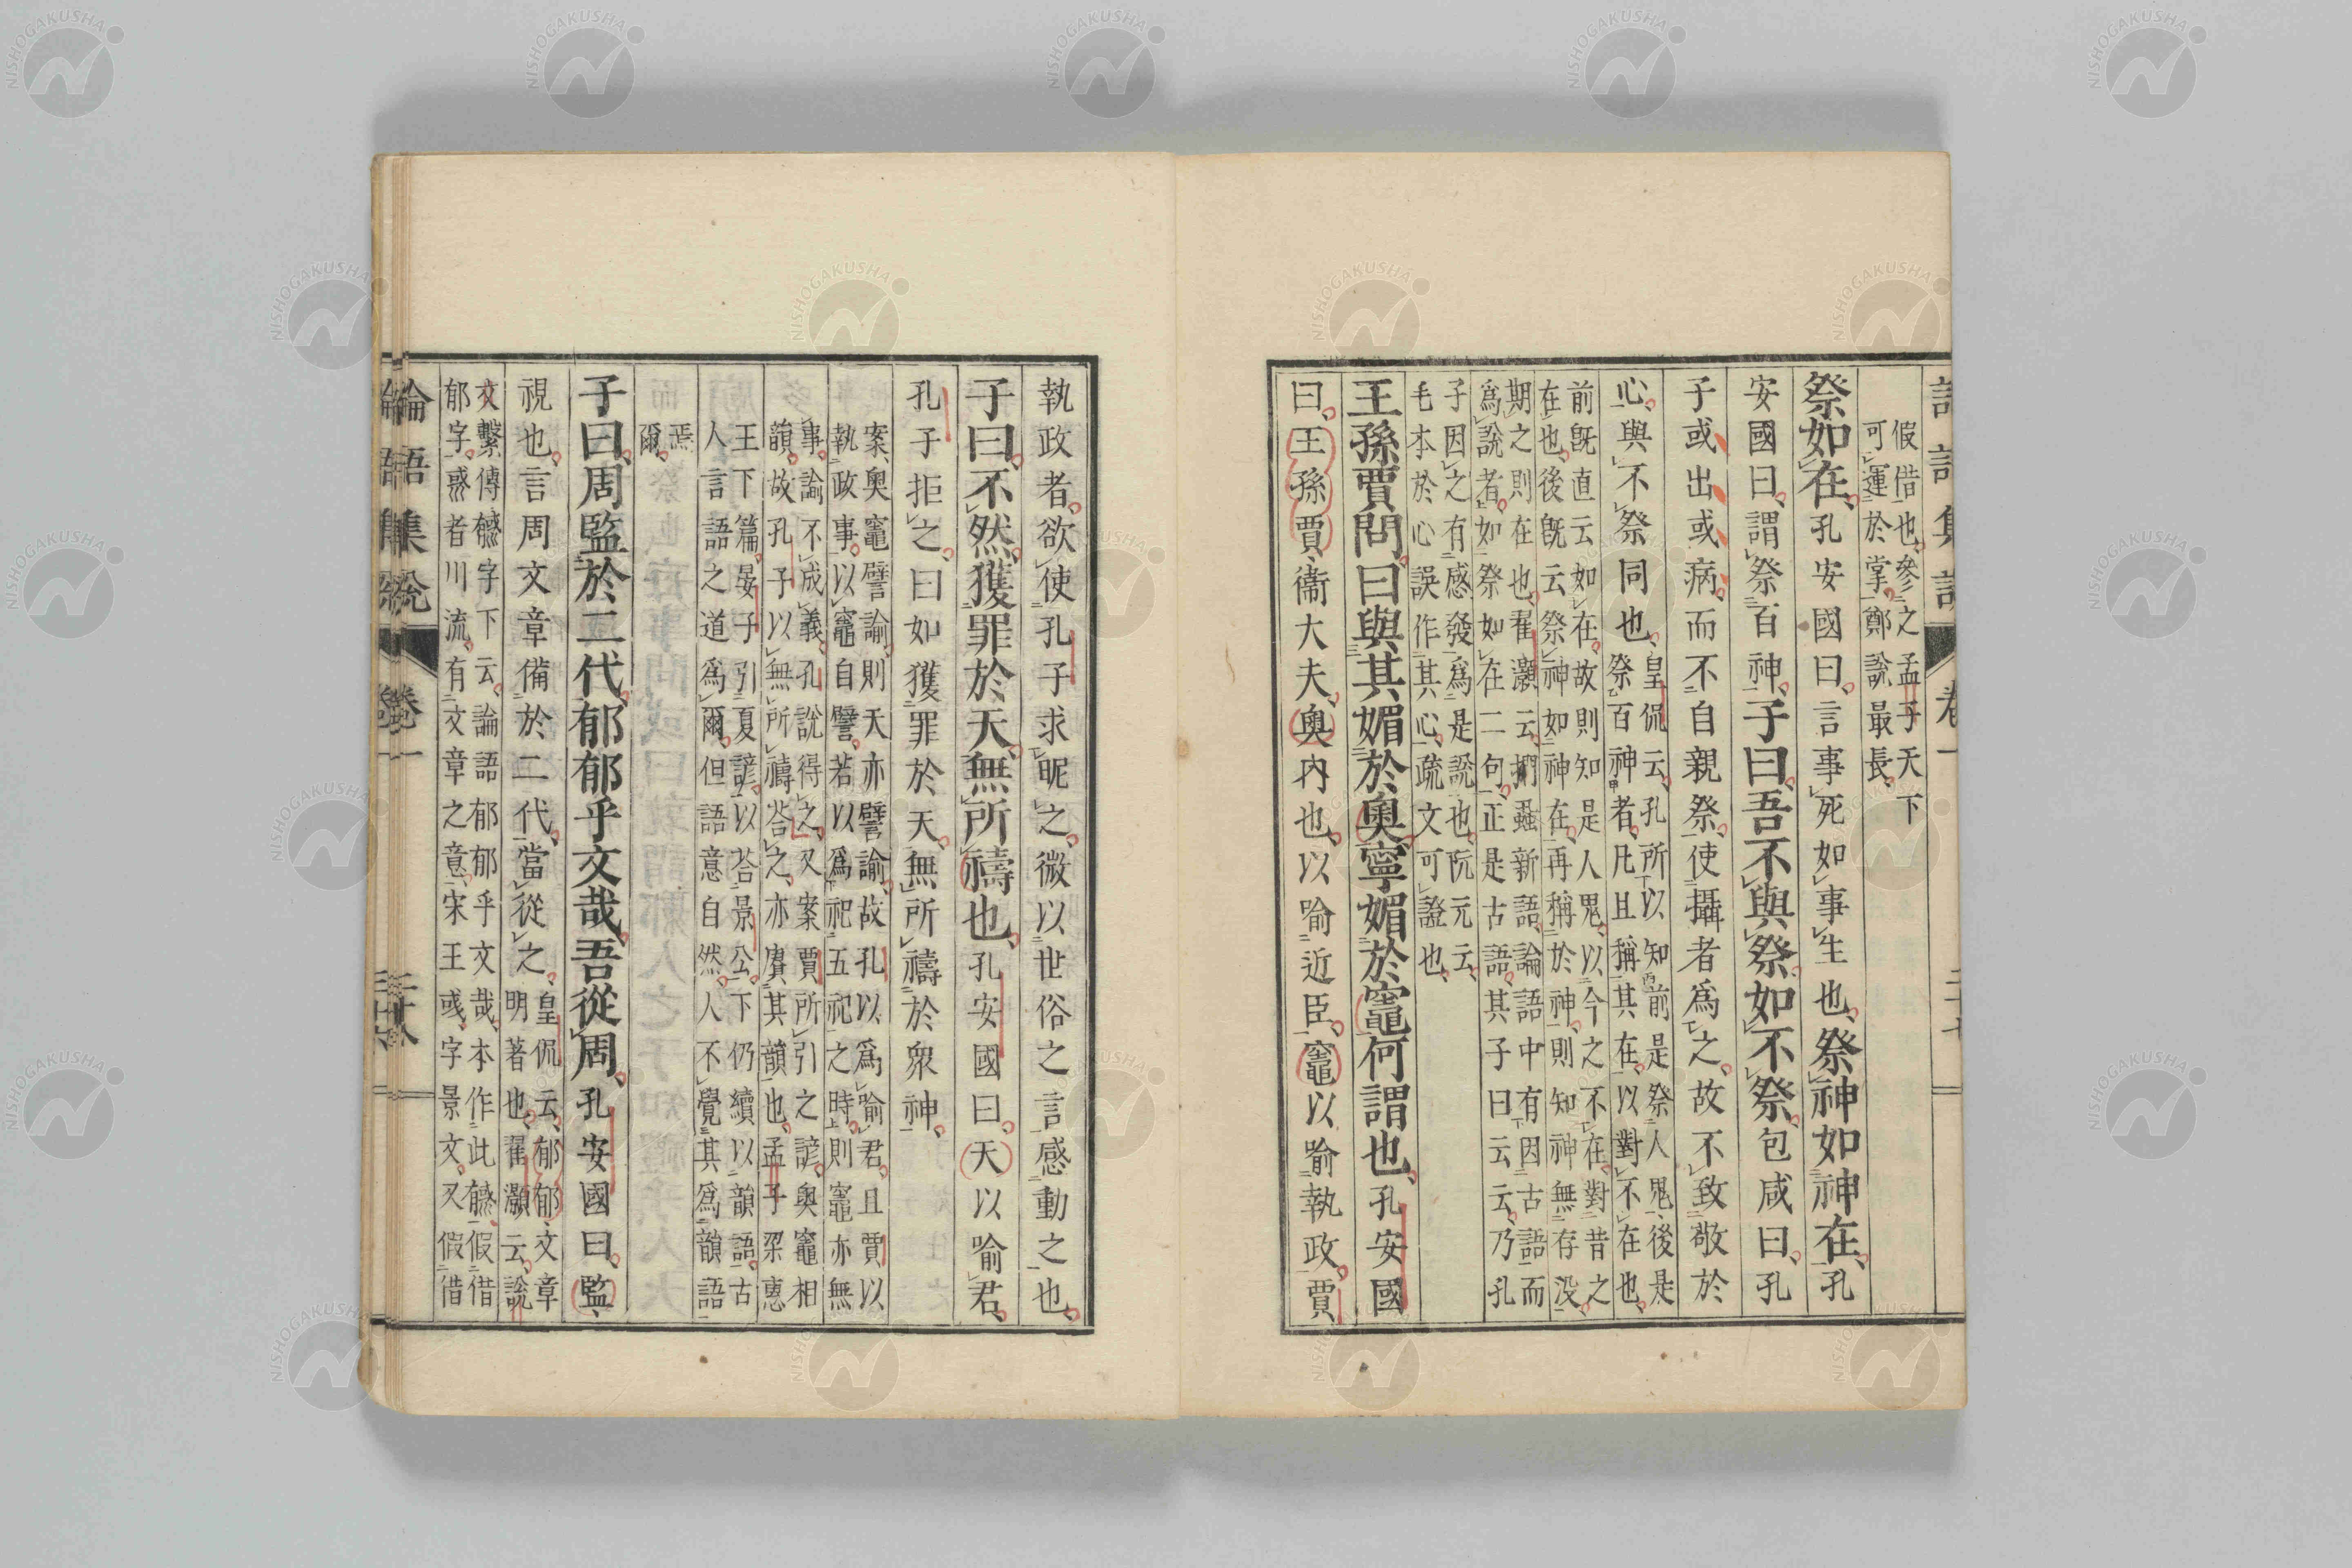 假借也、參之孟子天下
可運於掌、鄭說最長、
祭如在、孔安國曰、言事死如事生也、祭神如神在、孔
安國曰、謂祭百神、子曰、吾不與祭、如不祭、包咸曰、孔
子或出或病、而不自親祭、使攝者爲之、故不致敬於
心、與不祭同也、
皇侃云、孔所以知前是祭人鬼、後是
祭百神者、凡且稱其在、以對不在也、
前既直云如在、故則知是人鬼、以今之不在、對昔之
在也、後既云祭神如神在、再稱於神、則知神無存没、
期之則在也、翟灝云、捫蝨新語、論語中有因古語而
爲說者、如祭如在二句、正是古語、其子曰云云、乃孔
子因之有感發爲是說也、阮元云、
毛本於心誤作其心、疏文可證也、
王孫賈問曰、與其媚於奧、寧媚於竈、何謂也、孔安國
曰、王孫賈、衞大夫、奧内也、以喻近臣、竈以喻執政、賈
執政者、欲使孔子求昵之、微以世俗之言感動之也、
子曰、不然、獲罪於天、無所禱也、孔安國曰、天以喻君、
孔子拒之、曰如獲罪於天、無所禱於衆神、
案、奧竈譬諭、則天亦譬諭、故孔以爲喻君、且賈以
執政事、以竈自譬、若以爲祀五祀之時、則竈亦無
事、諭不成義、孔說得之、又案、賈所引之諺、奧竈相
韻、故孔子以無所禱荅之、亦賡其韻也、孟子梁惠
王下篇、晏子引夏諺、以荅景公、下仍續以韻語、古
人言語之道爲爾、但語意自然、人不覺其爲韻語
焉
爾、
子曰、周監於二代、郁郁乎文哉、吾從周、孔安國曰、監、
視也、言周文章備於二代、當從之、
皇侃云、郁郁、文章
明著也、翟灝云、說
文繫傳𢒈字下云、論語郁郁乎文哉、本作此𢒈、假借
郁字、惑者川流、有文章之意、宋王彧、字景文、又假借
論語集說 卷一
二十八